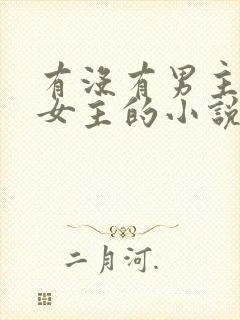 有没有男主
女主的小說
二月河.